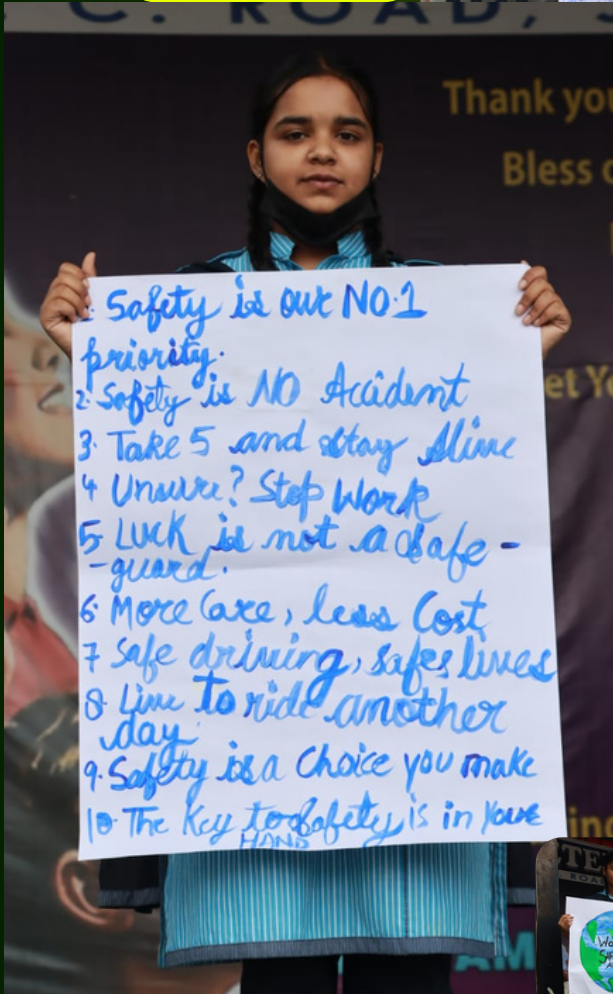 C. ROAD, S
Thank you
Bless o
et Yo
1. Safety is our NO.1
priority.
2. Safety is NO Accident
3. Take 5 and stay Alive
4 Unsure? Stop Work
5. Luck is not a safe -
- guard.
6. More Care, less Cost
7 Safe driving, safes lives
8 Live to ride another
day.
9. Safety is a Choice you make
10 The Key to Safety is in your
HAND
ing
AM
TE
ROA